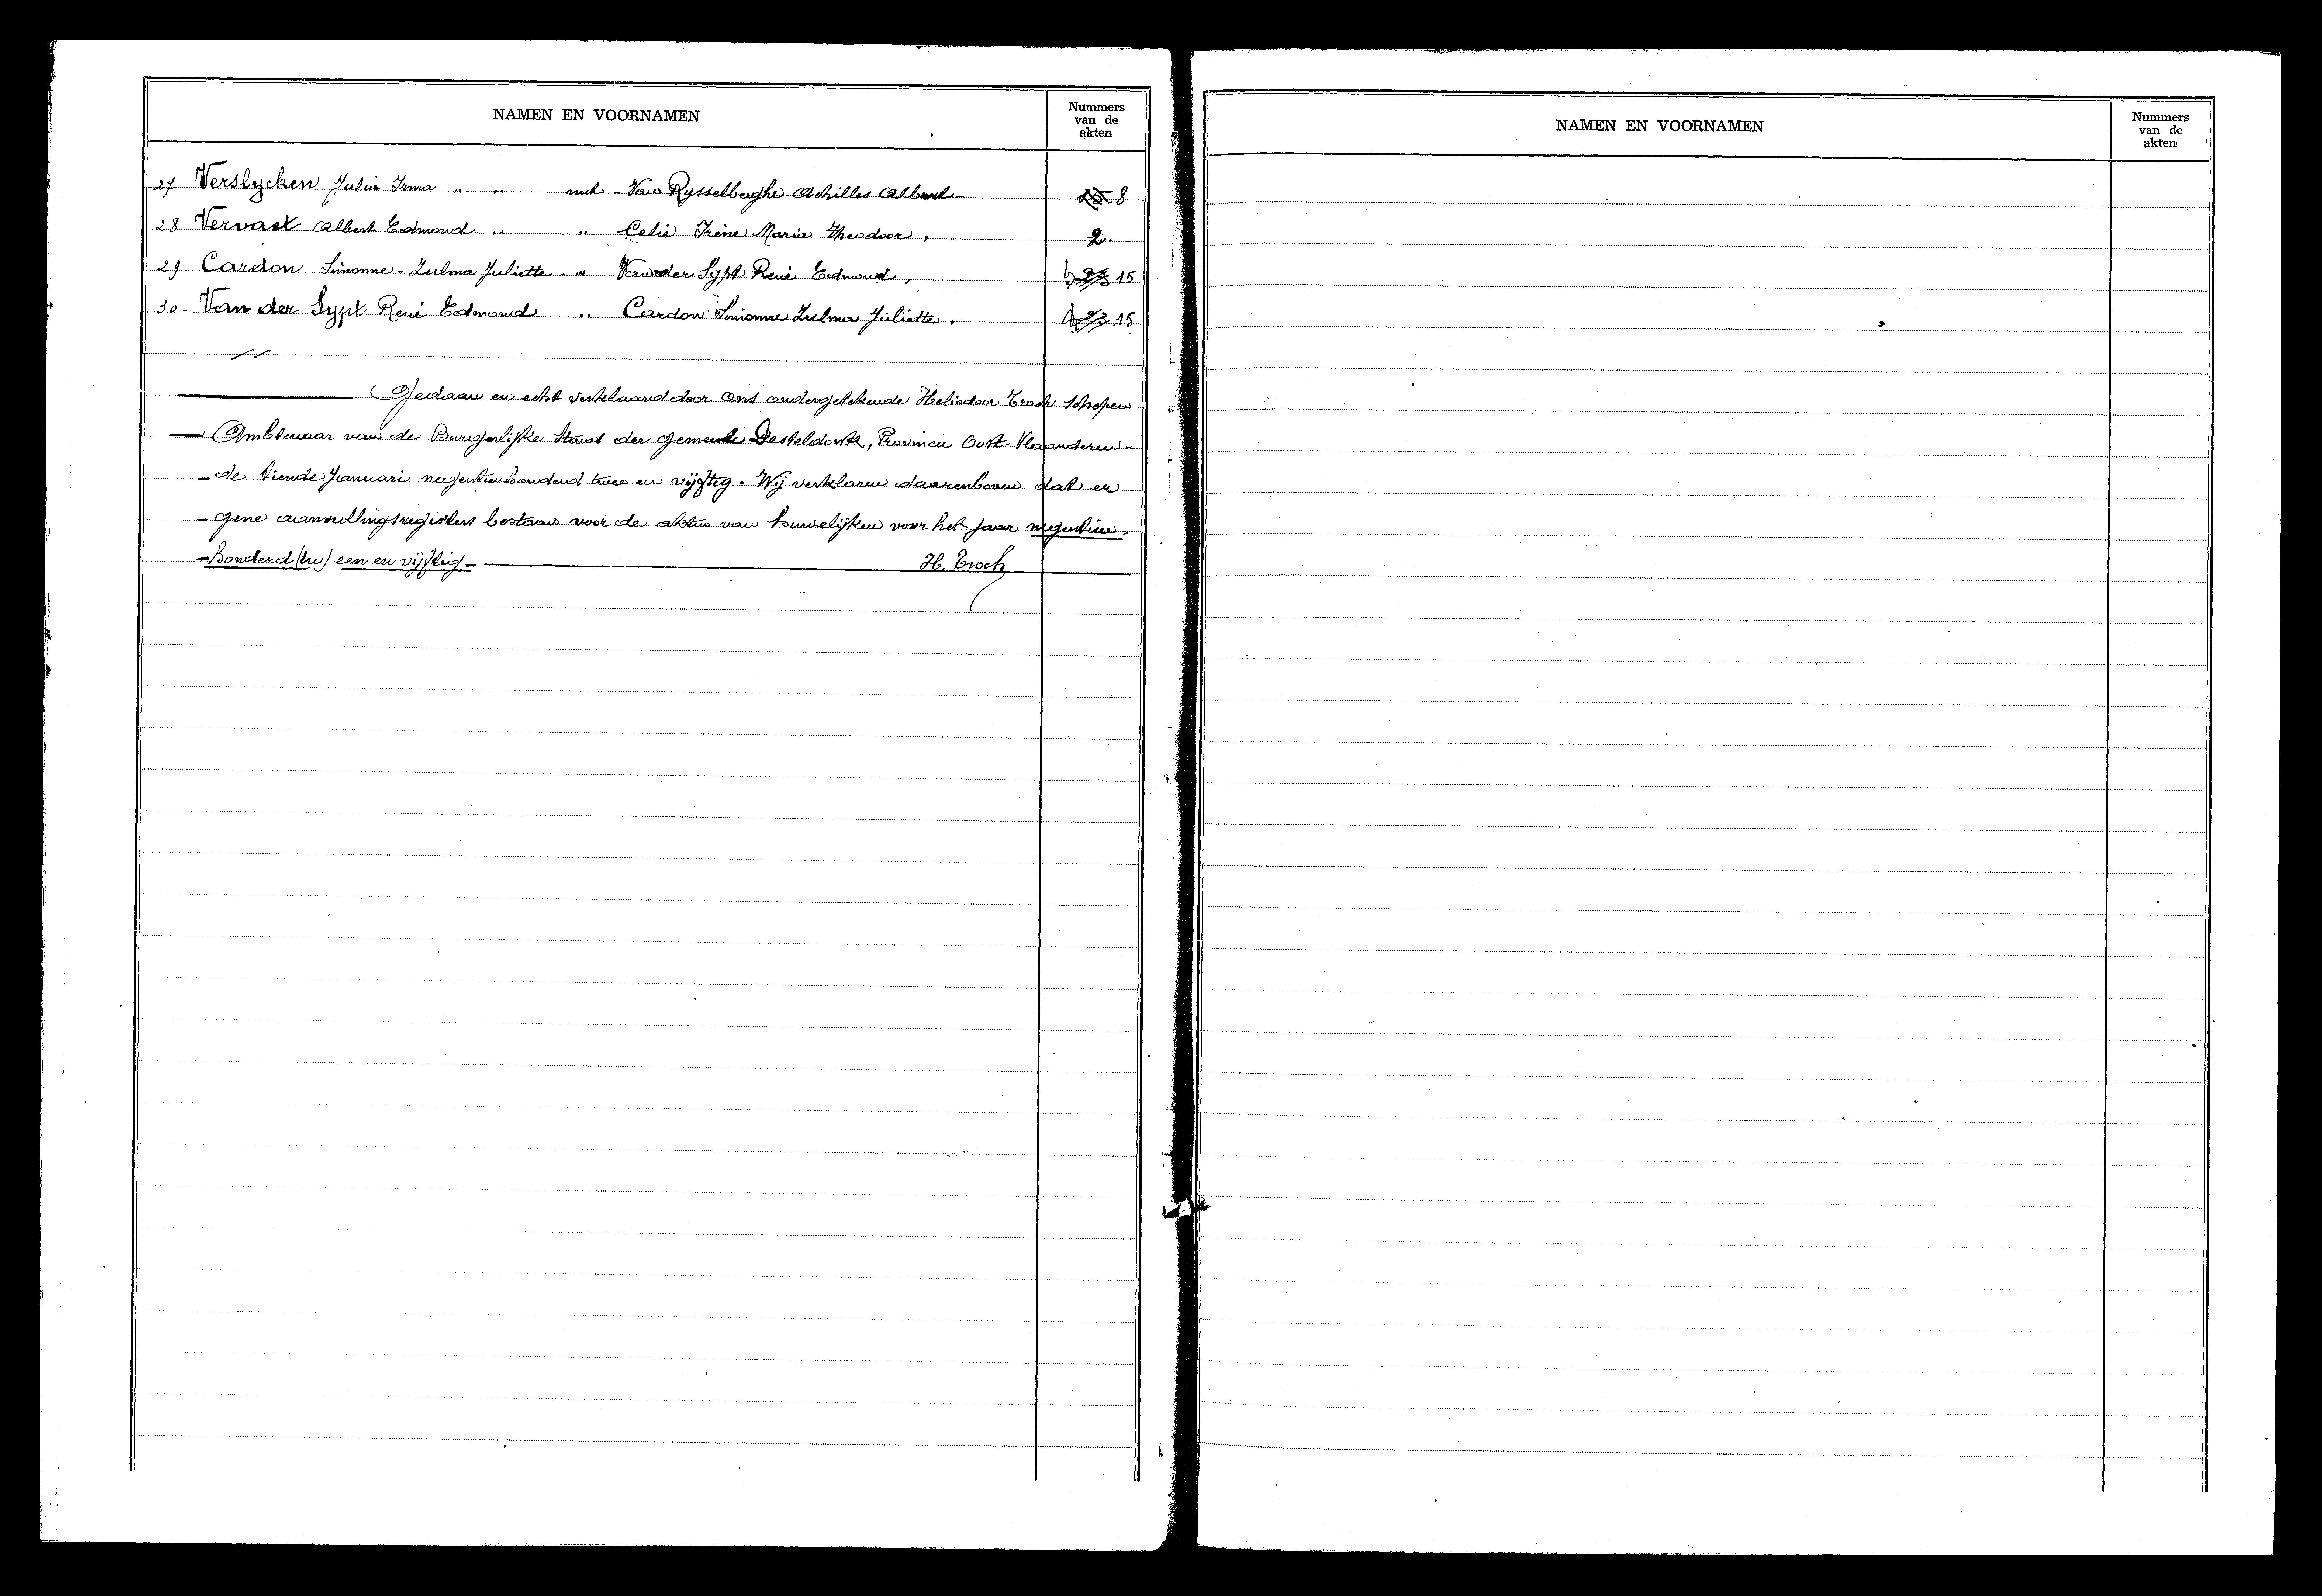 NAMEN EN VOORNAMEN
Nummers
van de
akten
27 Verslycken Julia Irma " " met - Van Rysselberghe Achilles Albert - 8
28 Vervaet Albert Edmond " " Celie Irène Maria Theodoor . 2.
29 Cardon Simonne - Zulma Juliette - " Van der Sypt René Edmond , 15
30. Van der Sypt René Edmond " Cardon Simonne Zulma Juliette . 15
Gedaan en echt verklaard door Ons ondergetekende Heliodoor Troch Schepen
Ambtenaar van de Burgerlijke Stand der gemeente Desteldonk, Provincie Oost-Vlaanderen -
- de tiende Januari negentienhonderd twee en vijftig. Wij verklaren daarenboven dat er
- gene aanvullingsregisters bestaan voor de akten van huwelijken voor het jaar negentien
- honderd (tw) een en vijftig - H. Troch
NAMEN EN VOORNAMEN
Nummers
van de
akten